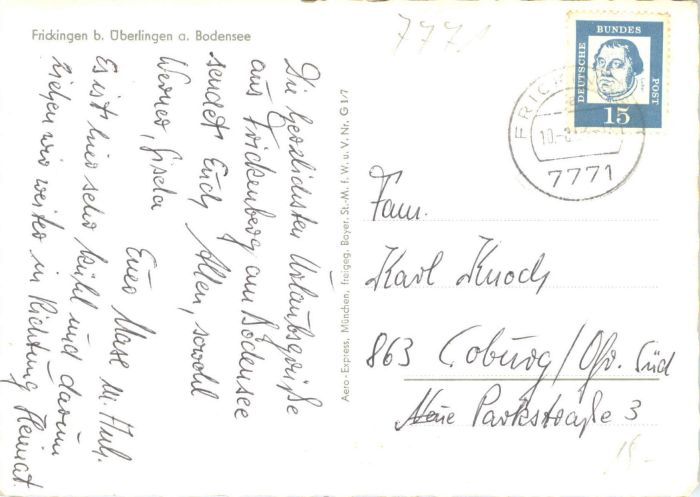 Frickingen b. Überlingen a. Bodensee
Die herzlichsten Urlaubsgrüße
aus Frickenberg am Bodensee
sendet Euch Allen, sowohl
Werner, Gisela
Eure
Es ist hier sehr kühl und darum
ziehen wir weiter in Richtung Heimat.
Aero-Express, München, freigeg. Bayer. St.-M. f. W. u. V. Nr. G 3/7
7771
DEUTSCHE BUNDES POST
15
FRICK
10.-8
7771
Fam.
Karl Knoch
863 Coburg/Ofr. Süd
Neue Parkstraße 3
15.-